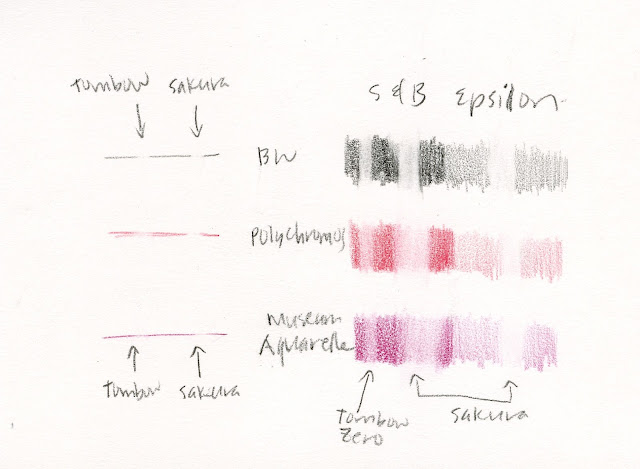 tombow sakura
S & B Epsilon
BW
Polychromos
Museum
Aquarelle
tombow sakura
Tombow
Zero
sakura